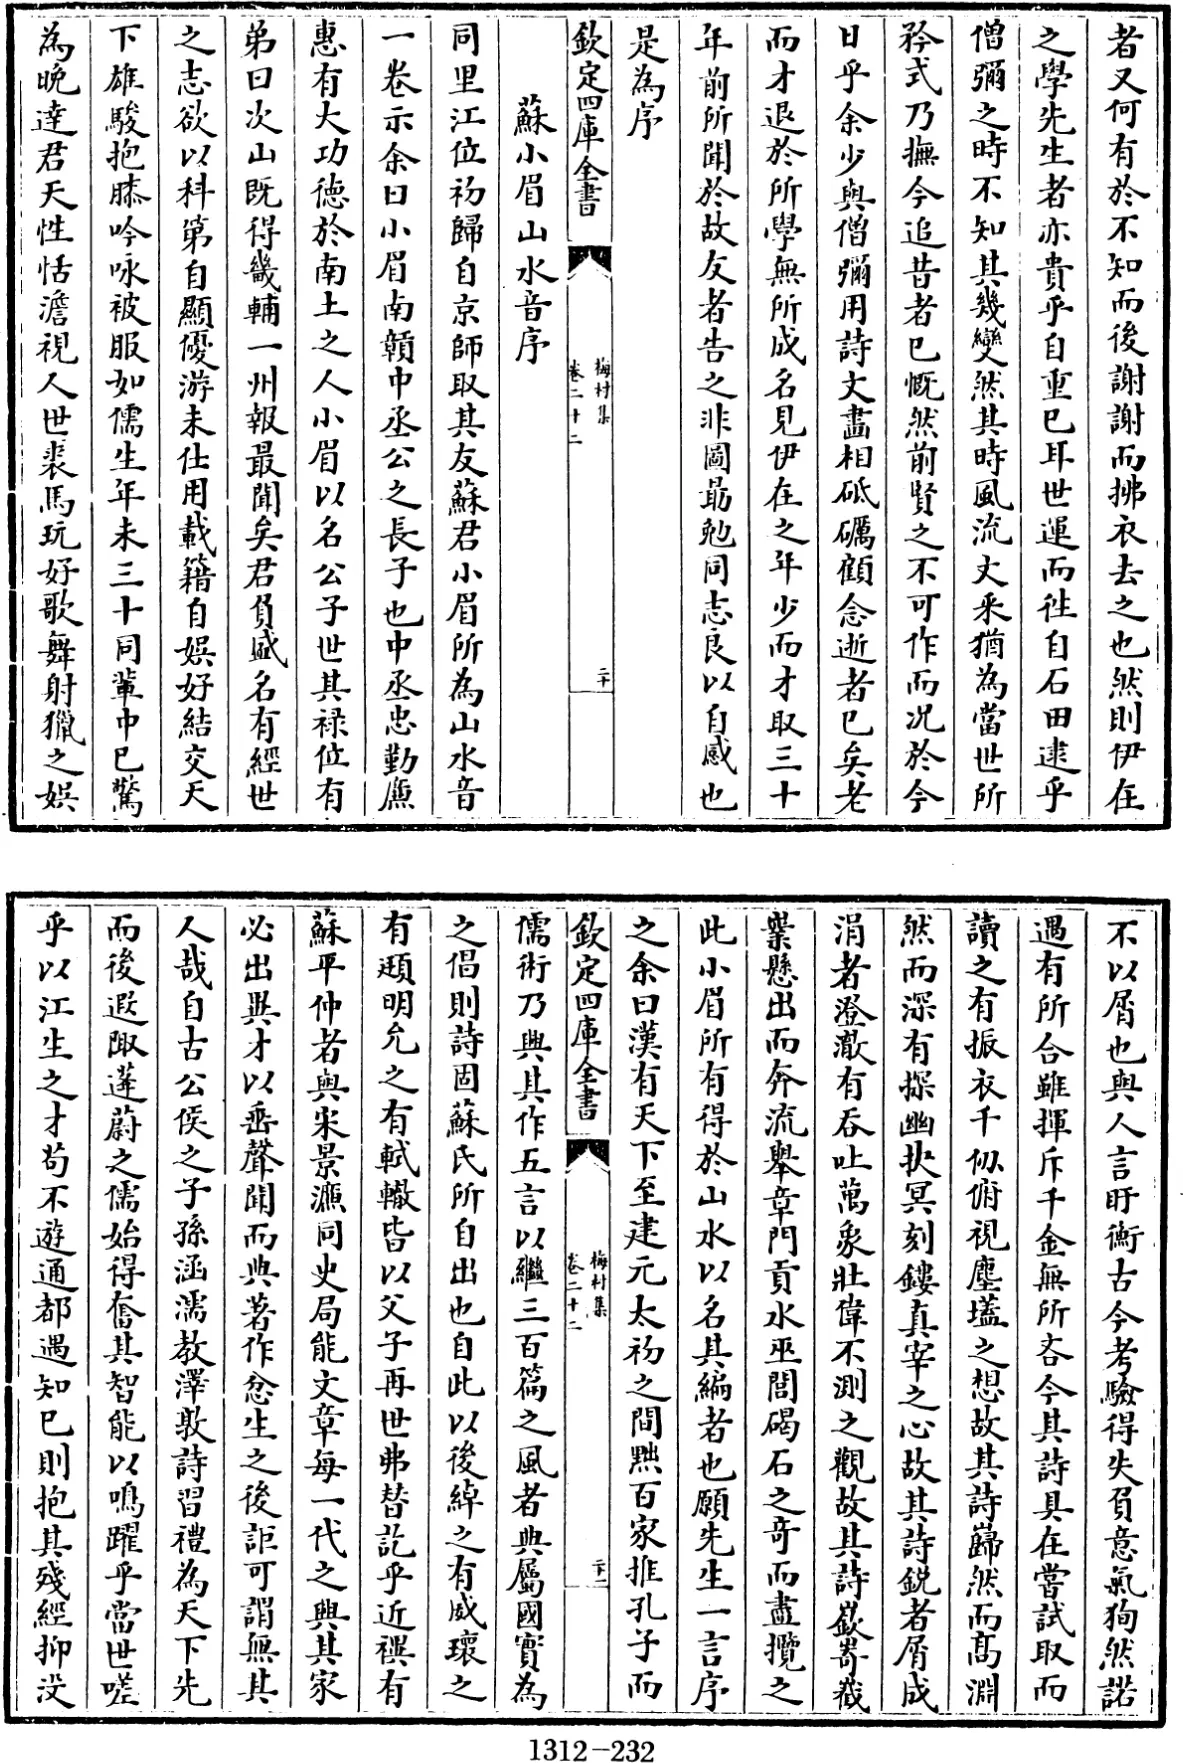 者又何有於不知而後謝謝而拂衣去之也然則伊在
之學先生者亦貴乎自重已耳世運而徃自石田逮乎
僧彌之時不知其幾變然其時風流文采猶為當世所
矜式乃撫今追昔者已慨然前賢之不可作而况於今
日乎余少與僧彌用詩文畫相砥礪顧念逝者已矣老
而才退於所學無所成名見伊在之年少而才取三十
年前所聞於故友者告之非圖勗勉同志良以自感也
是為序
欽定四庫全書
梅村集
卷二十二
二十
蘇小眉山水音序
同里江位初歸自京師取其友蘇君小眉所為山水音
一卷示余曰小眉南贛中丞公之長子也中丞忠勤廉
惠有大功德於南土之人小眉以名公子世其禄位有
弟曰次山既得畿輔一州報最聞矣君負盛名有經世
之志欲以科第自顯優游未仕用載籍自娯好結交天
下雄駿抱膝吟咏被服如儒生年未三十同輩中已驚
為晚達君天性恬澹視人世裘馬玩好歌舞射獵之娯
不以屑也與人言盱衡古今考驗得失負意氣狥然諾
遇有所合雖揮斥千金無所吝今其詩具在嘗試取而
讀之有振衣千仞俯視塵壒之想故其詩巋然而高淵
然而深有探幽抉冥刻鏤真宰之心故其詩銳者屑成
涓者澄澈有吞吐萬象壯偉不測之觀故其詩嶔嵜嶻
嶪懸出而奔流舉章門貢水巫閭碣石之奇而盡攬之
此小眉所有得於山水以名其編者也願先生一言序
之余曰漢有天下至建元太初之間黜百家推孔子而
欽定四庫全書
梅村集
卷二十二
二十一
儒術乃興其作五言以繼三百篇之風者典屬國實為
之倡則詩固蘇氏所自出也自此以後綽之有威瓌之
有頲明允之有軾轍皆以父子再世弗替訖乎近禩有
蘇平仲者與宋景濂同史局能文章每一代之興其家
必出異才以垂聲聞而典著作忿生之後詎可謂無其
人哉自古公侯之子孫涵濡教澤敦詩習禮為天下先
而後遐陬蓬蔚之儒始得奮其智能以鳴躍乎當世嗟
乎以江生之才茍不遊通都遇知已則抱其殘經抑没
1312-232